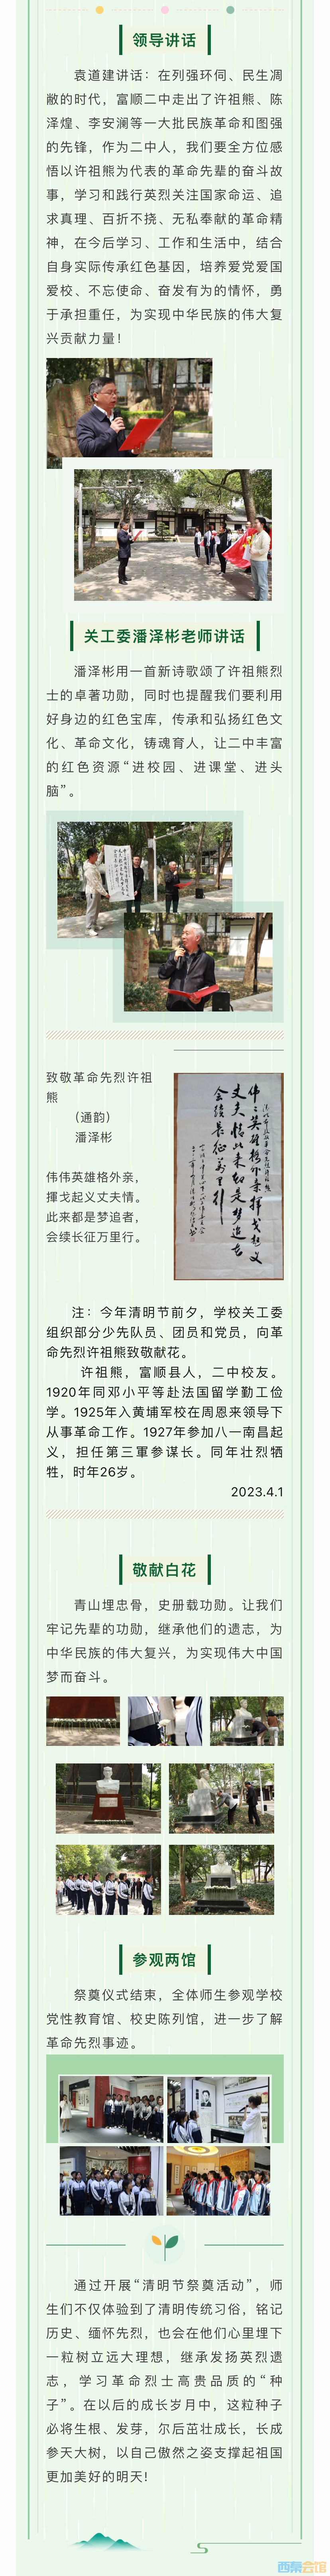 领导讲话
袁道建讲话：在列强环伺、民生凋
敝的时代，富顺二中走出了许祖熊、陈
泽煌、李安澜等一大批民族革命和图强
的先锋，作为二中人，我们要全方位感
悟以许祖熊为代表的革命先辈的奋斗故
事，学习和践行英烈关注国家命运、追
求真理、百折不挠、无私奉献的革命精
神，在今后学习、工作和生活中，结合
自身实际传承红色基因，培养爱党爱国
爱校、不忘使命、奋发有为的情怀，勇
于承担重任，为实现中华民族的伟大复
兴贡献力量！
关工委潘泽彬老师讲话
潘泽彬用一首新诗歌颂了许祖熊烈
士的卓著功勋，同时也提醒我们要利用
好身边的红色宝库，传承和弘扬红色文
化、革命文化，铸魂育人，让二中丰富
的红色资源“进校园、进课堂、进头
脑”。
致敬革命先烈许祖
熊
（通韵）
潘泽彬
伟伟英雄格外亲，
揮戈起义丈夫情。
此来都是梦追者，
会续长征万里行。
注：今年清明节前夕，学校关工委
组织部分少先队员、团员和党员，向革
命先烈许祖熊致敬献花。
许祖熊，富顺县人，二中校友。
1920年同邓小平等赴法国留学勤工俭
学。1925年入黄埔军校在周恩来领导下
从事革命工作。1927年参加八一南昌起
义，担任第三軍参谋长。同年壮烈牺
牲，时年26岁。
2023.4.1
敬献白花
青山埋忠骨，史册载功勋。让我们
牢记先辈的功勋，继承他们的遗志，为
中华民族的伟大复兴，为实现伟大中国
梦而奋斗。
参观两馆
祭奠仪式结束，全体师生参观学校
党性教育馆、校史陈列馆，进一步了解
革命先烈事迹。
通过开展“清明节祭奠活动”，师
生们不仅体验到了清明传统习俗，铭记
历史、缅怀先烈，也会在他们心里埋下
一粒树立远大理想，继承发扬英烈遗
志，学习革命烈士高贵品质的“种
子”。在以后的成长岁月中，这粒种子
必将生根、发芽，尔后茁壮成长，长成
参天大树，以自己傲然之姿支撑起祖国
更加美好的明天!